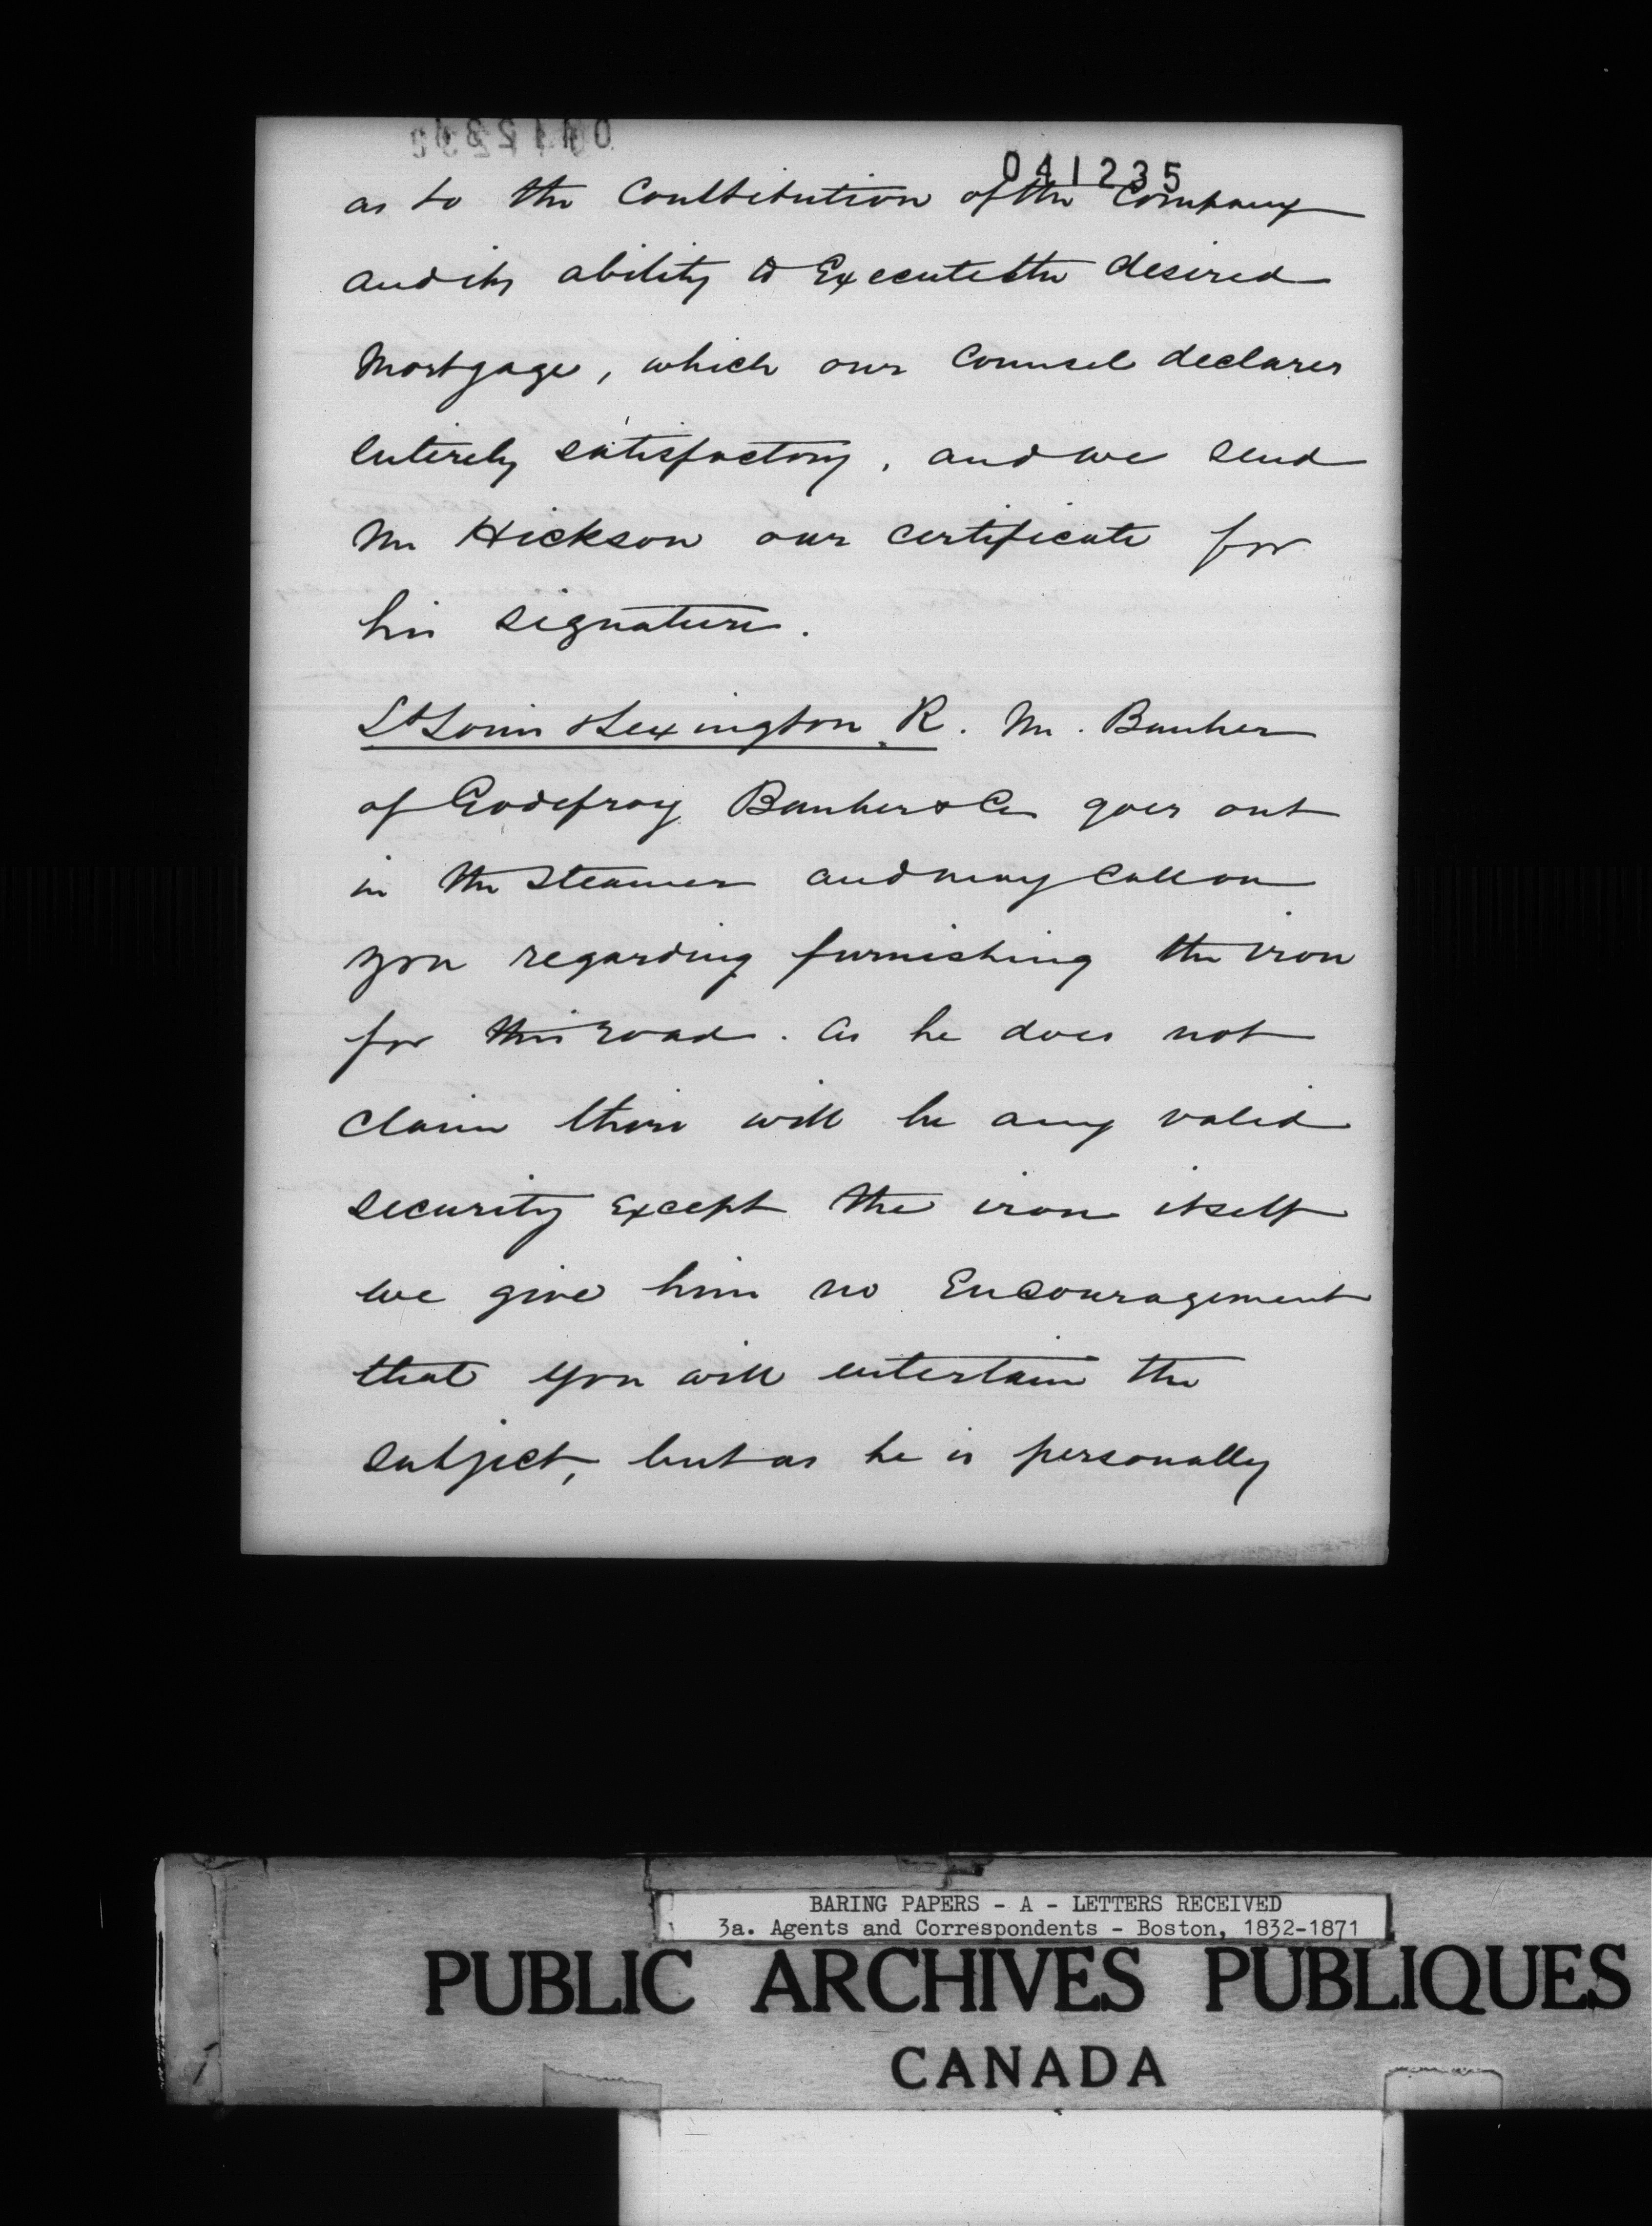 041235
as to the Constitution of the Company
and its ability to Execute the desired
Mortgage, which our Counsel declares
entirely satisfactory, and we send
Mr Hickson our certificate for
his signature.
St Louis & Lexington R. Mr. Banker
of Godefroy Banker & Co goes out
in the Steamer and may call on
you regarding furnishing the iron
for this road. As he does not
claim there will be any valid
security Except the iron itself
we give him no Encouragement
that you will entertain the
subject, but as he is personally
BARING PAPERS - A - LETTERS RECEIVED
3a. Agents and Correspondents - Boston, 1832-1871
PUBLIC ARCHIVES PUBLIQUES
CANADA